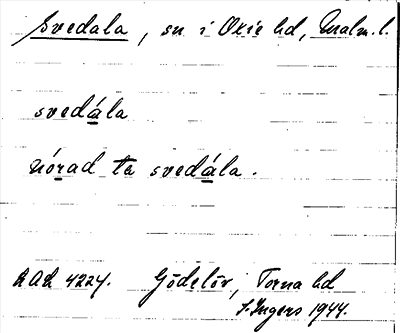 Svedala, sn i Oxie hd, Malm. l.
svedála
nórad ta svedála.
LAL 4224. Gödelöv, Torna hd
I. Ingers 1944.